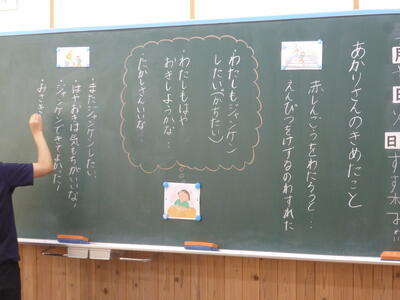 あかりさんのきめたこと
赤しんごうをわたろうと…
えんぴつをけずるのわすれた
・わたしもジャンケン
したい(かちたい)
・わたしもはや
おきしようかな…
たかしさんいいな
・またジャンケンしたい、
・はやおきは気もちがいいな。
・ジャンケンできてよかった!
月
日
日
すず木